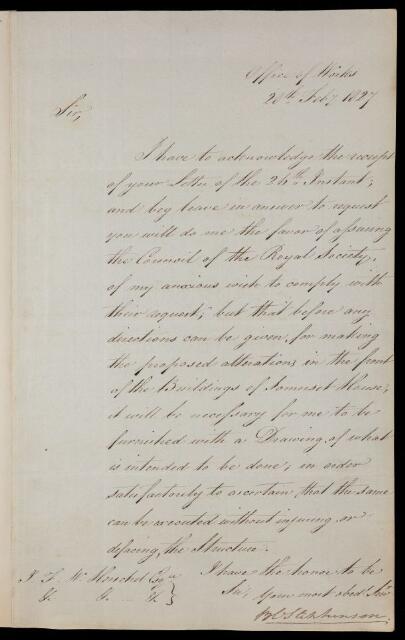 Office of Works
28th Feby 1827
Sir,
I have to acknowledge the receipt
of your Letter of the 26th Instant;
and beg leave in answer to request
you will do me the favor of assuring
the Council of the Royal Society,
of my anxious wish to comply with
their request; but that before any
directions can be given, for making
the proposed alterations in the front
of the Buildings of Somerset House,
it will be necessary for me to be
furnished with a Drawing, of what
is intended to be done, in order
satisfactorily to ascertain that the same
can be executed without injuring, or
defacing, the Structure.
I have the honor to be
J. F. W. Herschel Esqre
Sir, Your most obed. Serv
&. &. &.
Stephenson